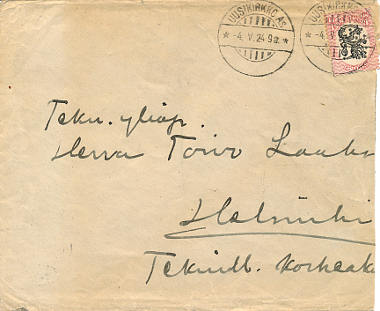 UUSIKIRKKO AS. UUSIKIRKKO AS.
* -4. V. 24 9 a. * * -4. V.
Tekn. yliop.
Herra Toivo Laaks
Helsinki
Teknill. Korkeak